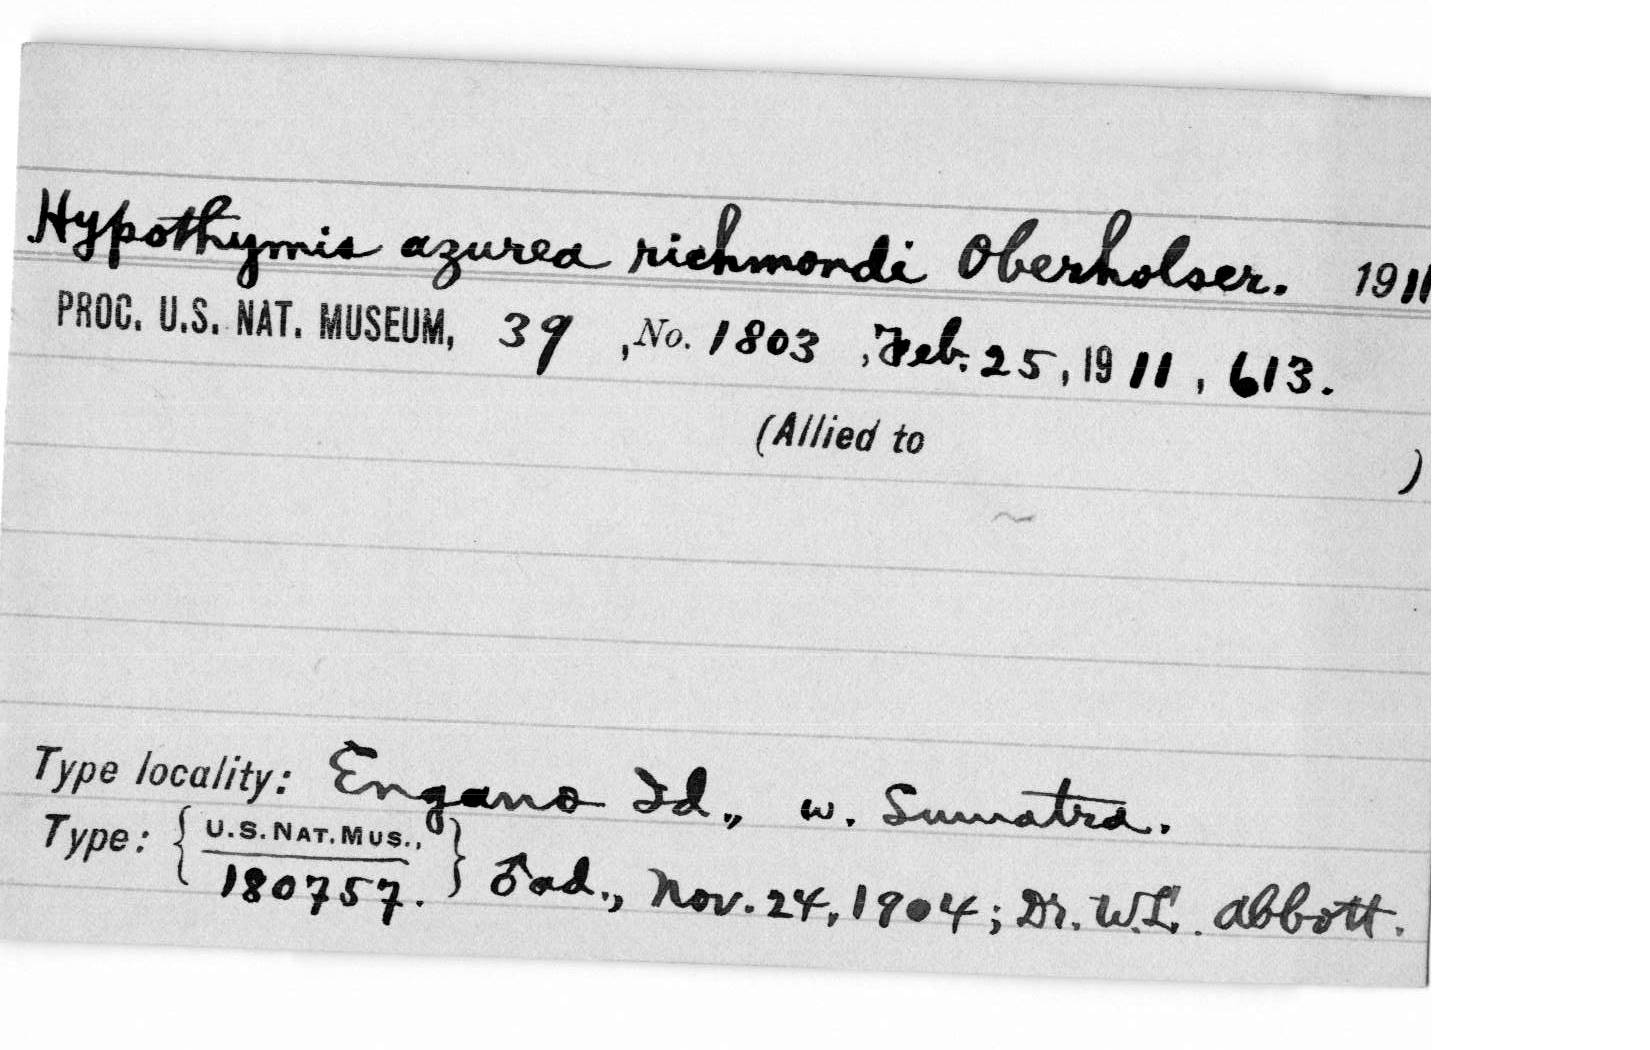 Hypothymis azurea richmondi Oberholser. 1911
PROC. U.S. NAT. MUSEUM, 39, No. 1803, Feb. 25, 1911, 613.
(Allied to )
Type locality: Engano Id., w. Sumatra.
Type: { U.S. NAT. MUS., 180757. } ♂ ad., Nov. 24, 1904; Dr. W.L. Abbott.